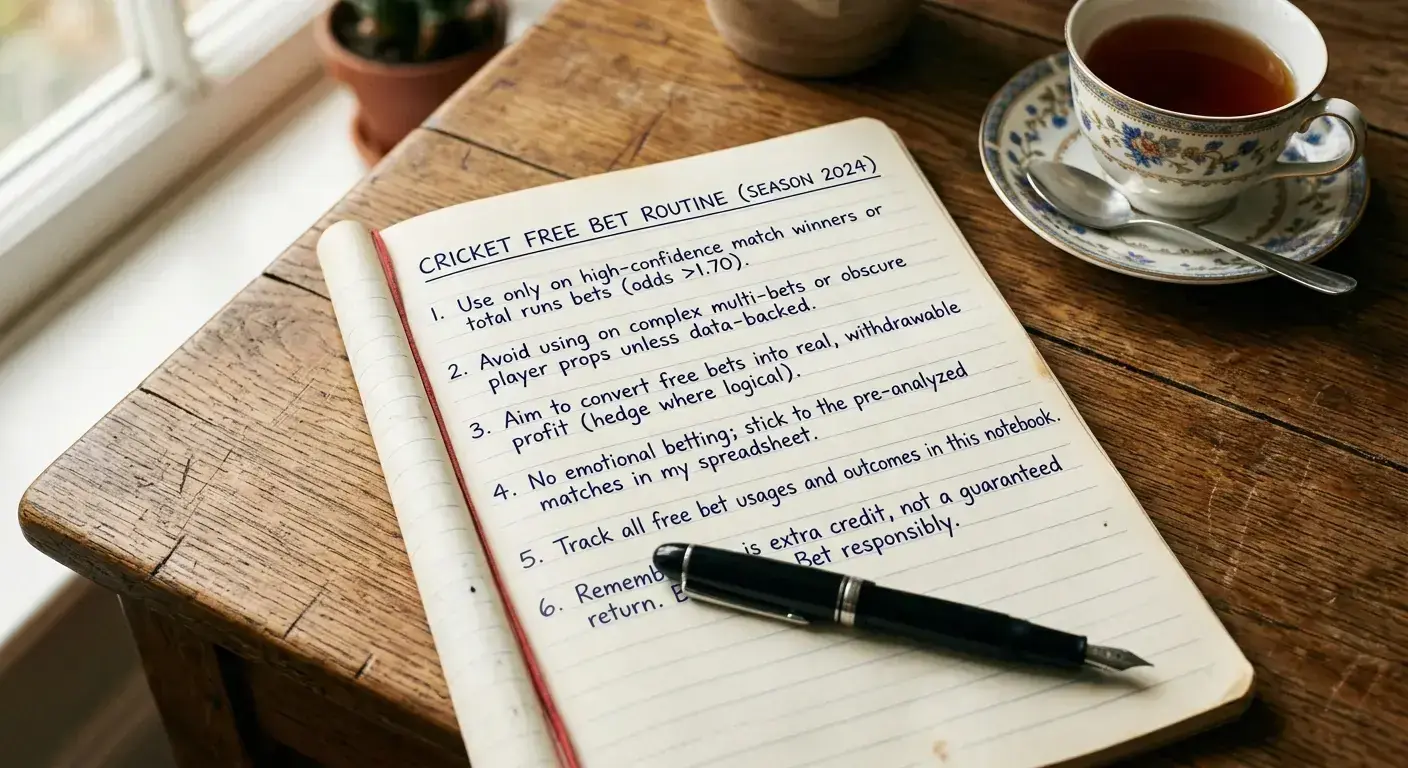 CRICKET FREE BET ROUTINE (SEASON 2024)
1. Use only on high-confidence match winners or
total runs bets (odds >1.70).
2. Avoid using on complex multi-bets or obscure
player props unless data-backed.
3. Aim to convert free bets into real, withdrawable
profit (hedge where logical).
4. No emotional betting; stick to the pre-analyzed
matches in my spreadsheet.
5. Track all free bet usages and outcomes in this notebook.
6. is extra credit, not a guaranteed
return. Bet responsibly.